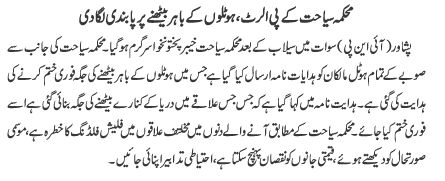 محکمہ سیاحت کے پی الرٹ، ہوٹلوں کے باہر بیٹھنے پر پابندی لگا دی
پشاور (آئی این پی) سوات میں سیلاب کے بعد محکمہ سیاحت خیبر پختونخوا سرگرم ہوگیا۔ محکمہ سیاحت کی جانب سے
صوبے کے تمام ہوٹل مالکان کو ہدایات نامہ ارسال کیا گیا ہے جس میں ہوٹلوں کے باہر بیٹھنے کی جگہ فوری ختم کرنے کی
ہدایت کی گئی ہے۔ ہدایت نامہ میں کہا گیا ہے کہ جس جس علاقے میں دریا کے کنارے بیٹھنے کی جگہ بنائی گئی ہے اسے
فوری ختم کیا جائے۔ محکمہ سیاحت کے مطابق آنے والے دنوں میں مختلف علاقوں میں فلیش فلڈنگ کا خطرہ ہے، موسمی
صورتحال کو دیکھتے ہوئے، قیمتی جانوں کو نقصان پہنچ سکتا ہے، احتیاطی تدابیر اپنائی جائیں۔